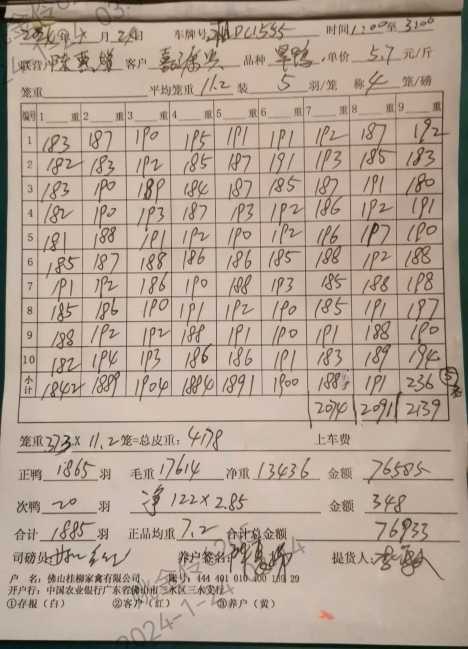 车牌号 DC1555 时间 1:00至3:00
联营 客户 品种 旱鸭 单价 5.7 元/斤
笼重 平均笼重 11.2 装 5 羽/笼 称 4 笼/磅
编号 1 重 2 重 3 重 4 重 5 重 6 重 7 重 8 重 9 重
1 183 187 190 195 191 191 192 187 192
2 182 183 192 185 187 191 193 185 183
3 183 190 189 184 187 185 187 191 180
4 182 190 193 187 193 192 186 192 191
5 181 188 191 192 190 192 196 197 190
6 185 187 188 186 186 185 188 192 188
7 191 192 186 190 188 193 185 188 198
8 185 186 190 191 192 190 185 191 197
9 188 192 192 188 191 190 191 188 190
10 182 194 193 186 186 191 183 189 194
小计 1842 1889 1904 1884 1891 1900 188 191 236
2074 2091 2139
笼重 373 x 11.2 笼=总皮重: 4178 上车费
正鸭 1865 羽 毛重 17614 净重 13436 金额 76585
次鸭 20 羽 净 122 x 2.85 金额 348
合计 1885 羽 正品均重 7.2 合计总金额 76933
司磅员 养户签名: 提货人:
户 名: 佛山桂柳家禽有限公司 账号: 444 401 010 400 29
开户行: 中国农业银行广东省佛山市三水区三水支行
①存根(白) ②客户(红) ③养户(黄)
2024-1-24